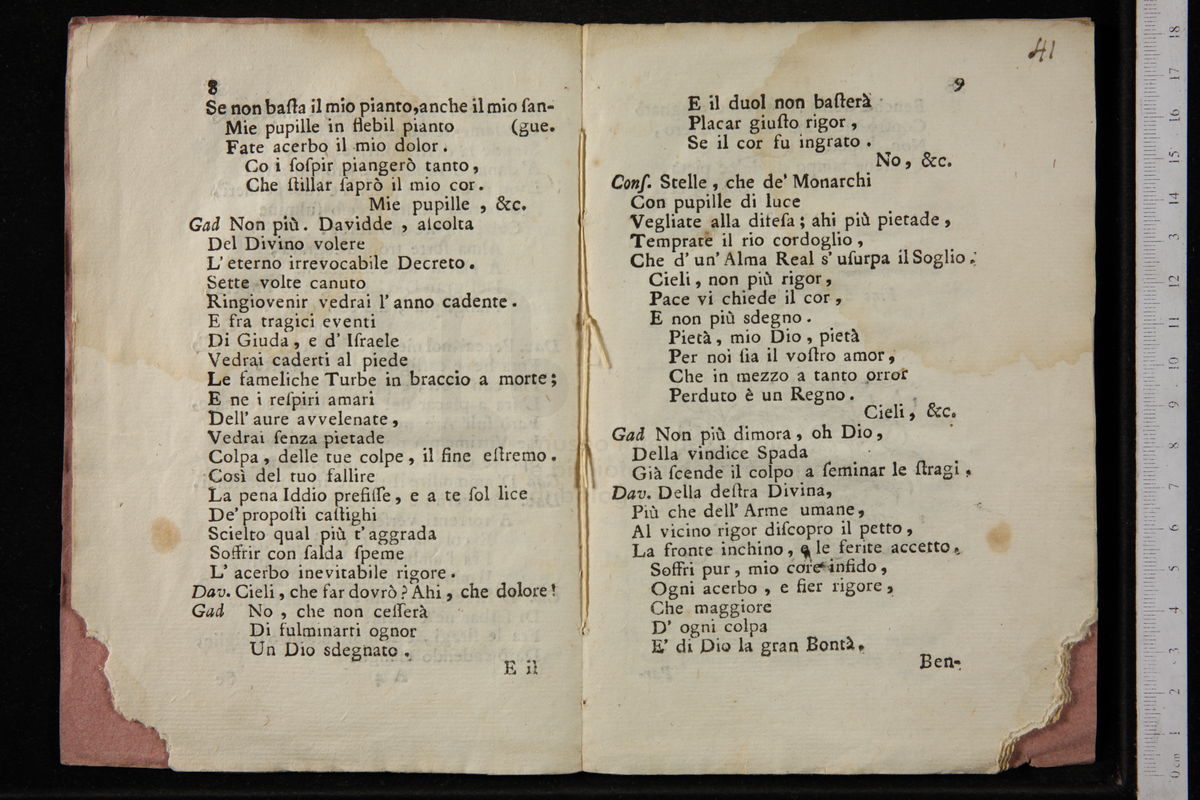 8
Se non baſta il mio pianto,anche il mio ſan-
Mie pupille in flebil pianto (gue.
Fate acerbo il mio dolor.
Co i ſoſpir piangerò tanto,
Che ſtillar ſaprò il mio cor.
Mie pupille, &c.
Gad Non più. Davidde, aſcolta
Del Divino volere
L'eterno irrevocabile Decreto.
Sette volte canuto
Ringiovenir vedrai l'anno cadente.
E fra tragici eventi
Di Giuda, e d'Iſraele
Vedrai caderti al piede
Le fameliche Turbe in braccio a morte;
E ne i reſpiri amari
Dell'aure avvelenate,
Vedrai ſenza pietade
Colpa, delle tue colpe, il fine eſtremo.
Così del tuo fallire
La pena Iddio prefiſſe, e a te ſol lice
De'propoſti caſtighi
Scielto qual più t'aggrada
Soffrir con ſalda ſpeme
L'acerbo inevitabile rigore.
Dav. Cieli, che far dovrò? Ahi, che dolore!
Gad No, che non ceſſerà
Di fulminarti ognor
Un Dio sdegnato.
E il
41
9
E il duol non baſterà
Placar giuſto rigor,
Se il cor fu ingrato.
No, &c.
Conſ. Stelle, che de'Monarchi
Con pupille di luce
Vegliate alla difeſa; ahi più pietade,
Temprate il rio cordoglio,
Che d'un'Alma Real s'uſurpa il Soglio.
Cieli, non più rigor,
Pace vi chiede il cor,
E non più sdegno.
Pietà, mio Dio, pietà
Per noi ſia il voſtro amor,
Che in mezzo a tanto orror
Perduto è un Regno.
Cieli, &c.
Gad Non più dimora, oh Dio,
Della vindice Spada
Già ſcende il colpo a ſeminar le ſtragi.
Dav. Della deſtra Divina,
Più che dell'Arme umane,
Al vicino rigor diſcopro il petto,
La fronte inchino, e le ferite accetto.
Soffri pur, mio core infido,
Ogni acerbo, e fier rigore,
Che maggiore
D'ogni colpa
E' di Dio la gran Bontà.
Ben-
0 cm 1 2 3 4 5 6 7 8 9 10 11 12 13 14 15 16 17 18